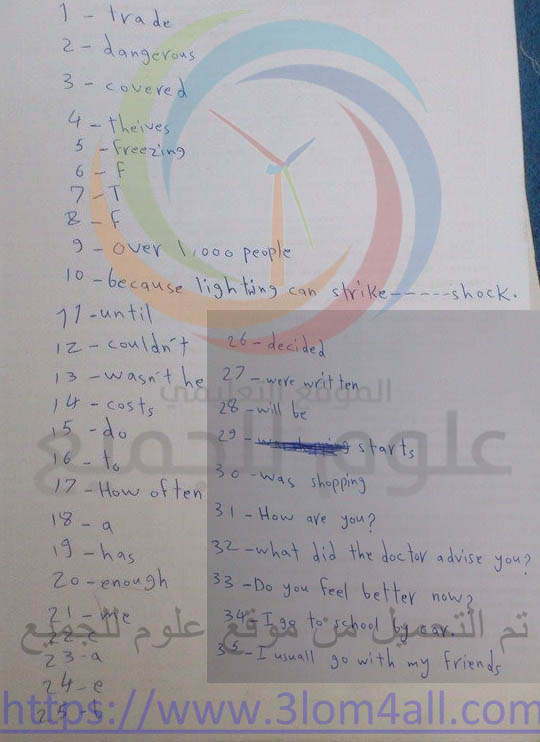 1 - trade
2 - dangerous
3 - covered
4 - theives
5 - freezing
6 - F
7 - T
8 - F
9 - over 1,000 people
10 - because lighting can strike------shock.
11 - until
12 - couldn't
13 - wasn't he
14 - costs
15 - do
16 - to
17 - How often
18 - a
19 - has
20 - enough
21 - me
22 - c
23 - a
24 - e
25 - b
26 - decided
27 - were written
28 - will be
29 - starts
30 - was shopping
31 - How are you?
32 - what did the doctor advise you?
33 - Do you feel better now?
34 - I go to school by car.
35 - I usuall go with my friends
الموقع التعليمي
علوم للجميع
تم التحميل من موقع علوم للجميع
https://www.3lom4all.com